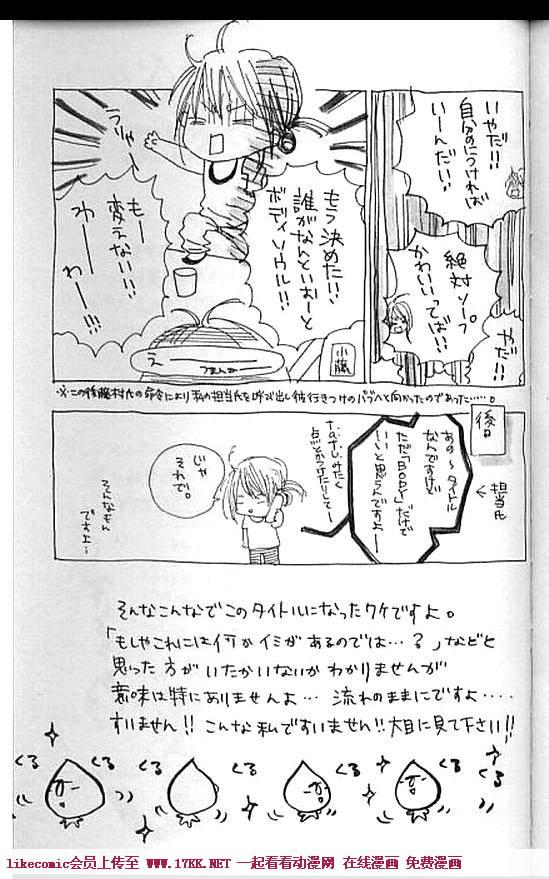 いやだ!!
自分のにつければ
いーんだい!!
絶対ソープ
かわいいってば!!
やだ!!
もう決めたい!!
誰がなんといおーと
ボディソウル!!
うりゃー
もー
変えない!!!
わーーわー!!!
えーーつまんなーー
小藤
後日
←担当氏
あの〜タイトル
なんですけど
ただ「BODY」だけで
いいと思うんですよー
点とかつけたりしてー
じゃ
それで。
そんなもん
ですよ…
そんなこんなでこのタイトルになったワケですよ。
「もしやこれには何かイミがあるのでは…?」などと
思った方がいたかいないかわかりませんが
意味は特にありませんよ… 流れのままにですよ‥‥
すいません!! こんな私ですいません!!大目に見て下さい!!
くる くる くる くる くる くる くる
likecomic会员上传至 WWW.17KK.NET 一起看看动漫网 在线漫画 免费漫画